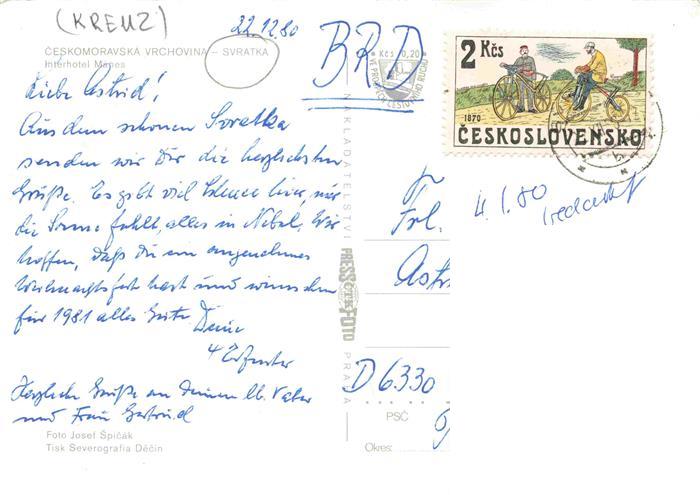 (KREUZ)
22.12.80
ČESKOMORAVSKÁ VRCHOVINA – SVRATKA
Interhotel Mapes
Liebe Astrid!
Aus dem schönen Svratka
senden wir Dir die herzlichsten
Grüße. Es gibt viel Schnee hier, nur
die Sonne fehlt, alles in Nebel. Wir
hoffen, daß Du ein angenehmes
Weihnachtsfest hast und wünschen
für 1981 alles Gute. Deine
4 Erfurter
Herzliche Grüße an Deinen lb. Vater
und Frau Gertrud
Foto Josef Špičák
Tisk Severografia Děčín
BRD
Kčs 0,20
NAKLADATELSTVÍ
PRESSFOTO
ČTK
PRAHA
2 Kčs
1870
ČESKOSLOVENSKO
4.1.80
Frl.
Astri
D 6330
PSČ
Okres: